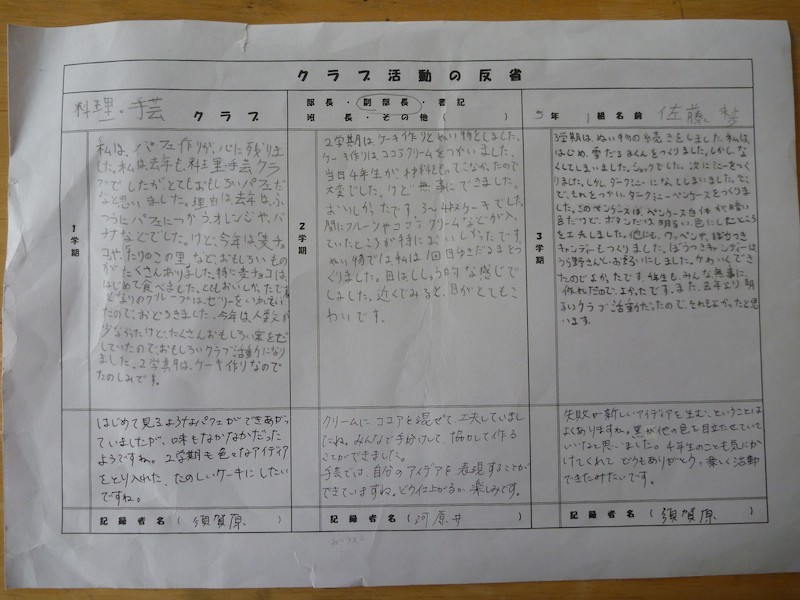 クラブ活動の反省
料理・手芸 クラブ
部長・副部長・書記
班長・その他( )
5年 1組 名前 佐藤
1学期
私は、パフェ作りが、心に残りま
した。私は去年も料理手芸クラ
ブでしたがとてもおもしろいパフェだ
なと思いました。理由は、去年は、ふ
つうにパフェにつかうオレンジや、バ
ナナなどでした。けど、今年は麦チョ
コや、たけのこの里など、おもしろいもの
がたくさんありました。特に麦チョコは、
はじめて食べました。とてもおいしかったです
となりのグループは、ゼリーをいれてい
たので、おどろきました。今年は、人数が
少なかったけど、たくさんおもしろい案をだ
していたので、おもしろいクラブ活動になり
ました。2学期は、ケーキ作りなので
たのしみです。
はじめて見るようなパフェができあがっ
ていましたが、味もなかなかだった
ようですね。2学期も色々なアイディア
をとり入れた、たのしいケーキにしたい
ですね。
記録者名(須賀原)
2学期
2学期は、ケーキ作りとぬい物をしました。
ケーキ作りは、ココアクリームをつかいました。
当日4年生が、材料をもってこなかったので
大変でした。けど無事にできました。
おいしかったです。
間にフルーツやココアクリームなどが入っ
ていたところが特においしかったです。
ぬい物では、私は1個目ゆきだるまをつ
くりました。目はししゅう的な感じで
しました。近くでみると、目がとてもこ
わいです。
クリームにココアを混ぜて、工夫していまし
たね。みんなで手分けして、協力して作る
ことができました。
手芸では、自分のアイデアを表現することが
できていますね。どう仕上がるか、楽しみです。
記録者名(河原井)
3学期
3学期は、ぬいものの続きをしました。私は、
はじめ、雪だるまくんをつくりました。しかし、な
くしてしまいました。ショックでした。次にミニーをつく
りました。しかし、ダークミニーになってしまいました。で
で、それをつかい、ダークミニーペンケースをつくりま
した。このペンケースは、ペンケース自体が暗い
色だけで、ボタンだけ明るい色にしたところ
を工夫しました。他にも、ワッペンや、ぼうつき
キャンディーもつくりました。ぼうつきキャンディーは、
かわいくでき
たのでよかったです。4年生も、みんな無事に、
作れたので、よかったです。また、去年より明
るいクラブ活動だったので、それもよかったと思
います。
失敗が新しいアイディアを生む、ということは
よくありますね。黒が他の色を目立たせてい
ていいなと思いました。4年生のことも気にか
けてくれて どうもありがとう。楽しく活動
できたみたいです。
記録者名(須賀原)